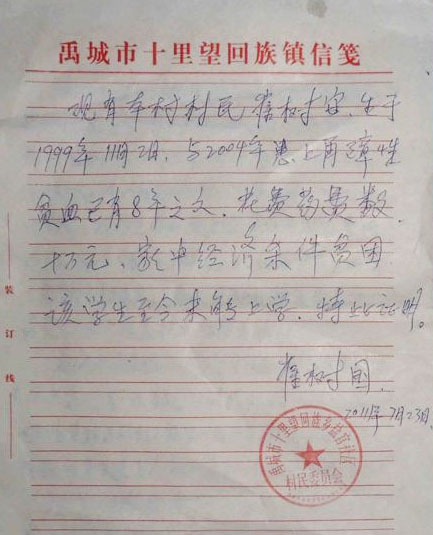 禹城市十里望回族镇信笺
现有本村村民崔树宝，生于
1999年11月2日，与2004年患上再障性
贫血已有8年之久，花费药费数
十万元，家中经济条件贫困
该学生至今未能上学，特此证明。
崔树国
2011年7月23日
装订线
村民委员会